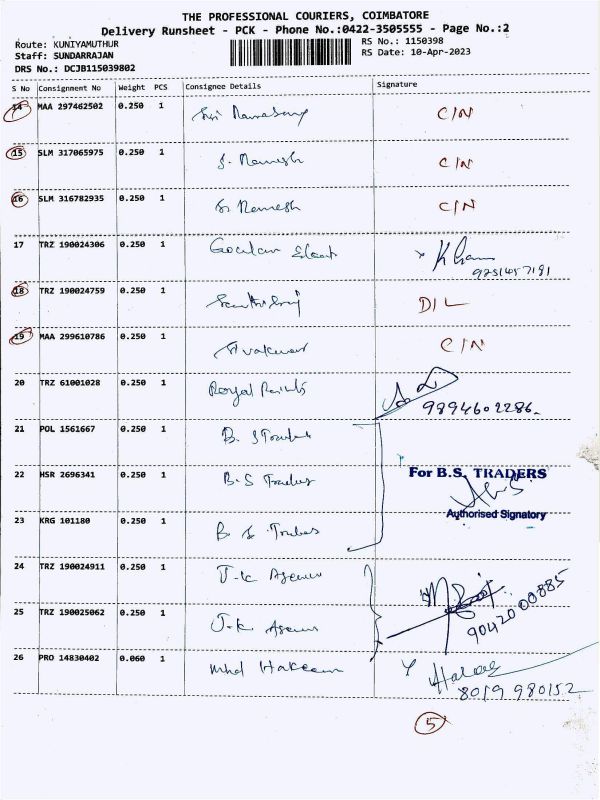 THE PROFESSIONAL COURIERS, COIMBATORE
Delivery Runsheet - PCK - Phone No.:0422-3505555 - Page No.:2
Route: KUNIYAMUTHUR
RS No.: 1150398
Staff: SUNDARRAJAN
RS Date: 10-Apr-2023
DRS No.: DCJB115039802
S No Consignment No Weight PCS Consignee Details Signature
14 MAA 297462502 0.250 1 C/N
15 SLM 317065975 0.250 1 Ramesh C/N
16 SLM 316782935 0.250 1 Ramesh C/N
17 TRZ 190024306 0.250 1 Goculam
18 TRZ 190024759 0.250 1 D/L
19 MAA 299610786 0.250 1 C/N
20 TRZ 61001028 0.250 1 Royal Paints
9894602286
21 POL 1561667 0.250 1 B. S Traders
22 HSR 2696341 0.250 1 B.S Traders For B.S. TRADERS
Authorised Signatory
23 KRG 101180 0.250 1 B S Traders
24 TRZ 190024911 0.250 1 J.K
9042000885
25 TRZ 190025062 0.250 1 J.K
26 PRO 14830402 0.060 1 Mhd Hakeem
8019 980152
5